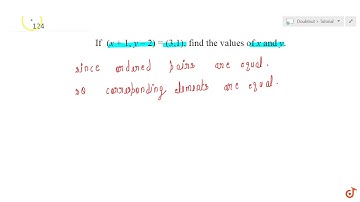 124
If (x + 1, y − 2) = (3,1), find the values of x and y.
since ordered pairs are equal.
so corresponding elements are equal.